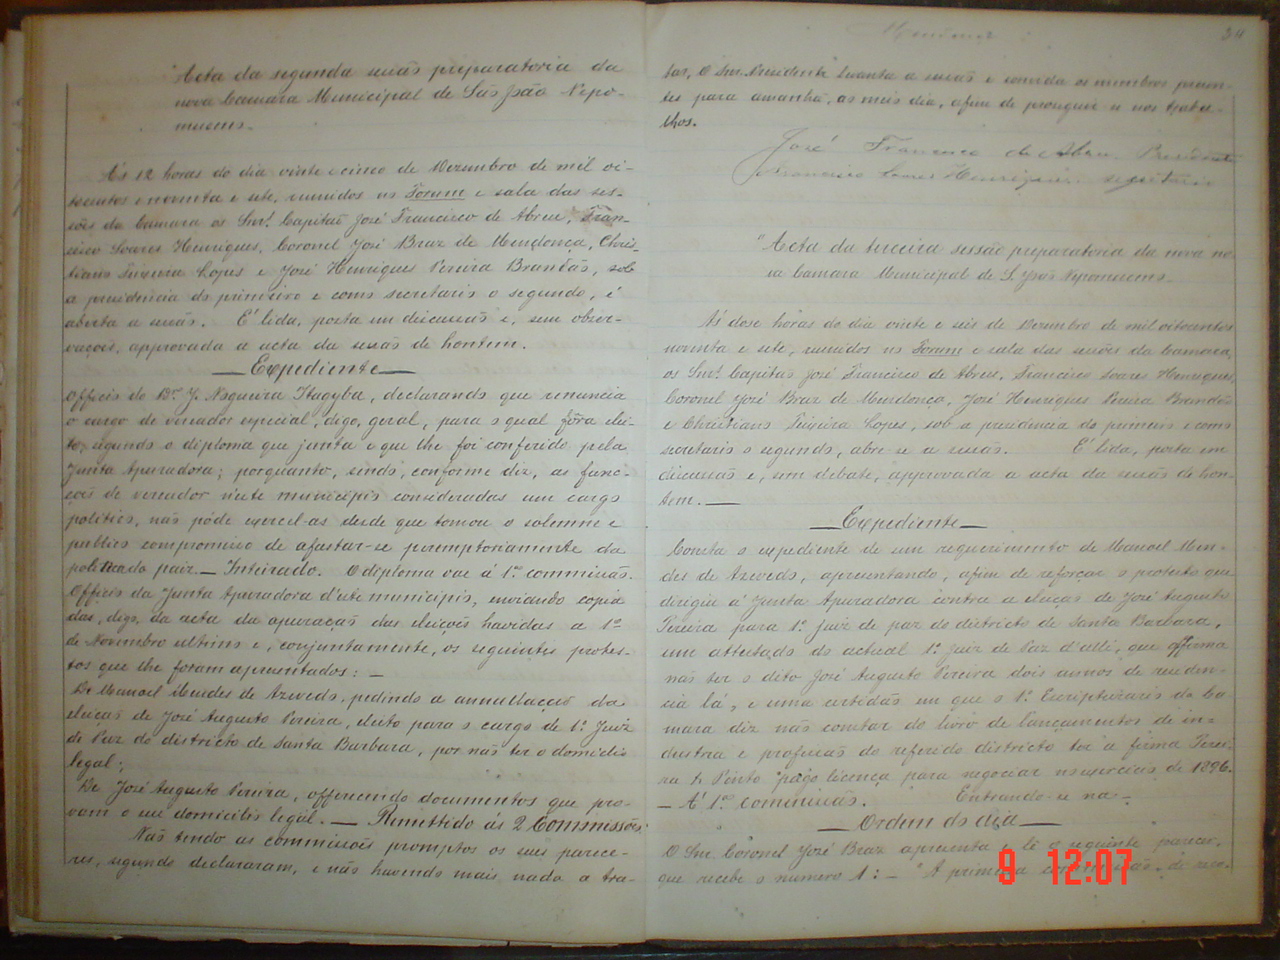 Acta da segunda sessão preparatoria da
nova Camara Municipal de São João Nepo-
muceno.
Ás 12 horas do dia vinte e cinco de Dezembro de mil oi-
tocentos e noventa e sete, reunidos no Forum e sala das ses-
sões da Camara os Snrs. Capitão José Francisco de Abreu, Fran-
cisco Soares Henriques, Coronel José Braz de Mendonça, Chris-
tiano Teixeira Lopes e José Henriques Pereira Brandão, sob
a presidencia do primeiro e como secretario o segundo, é
aberta a sessão. É lida, posta em discussão e, sem obser-
vações, approvada a acta da sessão de hontem.
Expediente
Officio do Dr. J. Nogueira Itagyba, declarando que renuncia
o cargo de vereador especial, digo, geral, para o qual fôra elei-
to, segundo o diploma que junta e que lhe foi conferido pela
Junta Apuradora; porquanto, sendo, conforme diz, as func-
ções de vereador n'este municipio consideradas um cargo
politico, não póde exercel-as desde que tomou o solemne e
publico compromisso de afastar-se peremptoriamente da
politica do paiz. — Inteirado. O diploma vae á 1a. commissão.
Officio da Junta Apuradora d'este municipio, enviando copia
das, digo, da acta da apuração das eleições havidas a 1o
de Novembro ultimo e, conjuntamente, os seguintes protes-
tos que lhe foram apresentados: —
De Manoel Mendes de Azevedo, pedindo a annullação da
eleição de José Augusto Pereira, eleito para o cargo de 1o. Juiz
de Paz do districto de Santa Barbara, por não ter o domicilio
legal;
De José Augusto Pereira, offerecendo documentos que pro-
vam o seu domicilio legal. — Remettido ás 2 Commissões.
Não tendo as commissões promptos os seus parece-
res, segundo declararam, e não havendo mais nada a tra-
34
tar, O Snr. Presidente levanta a sessão e convida os membros presen-
tes para amanhã, ao meio dia, afim de proseguir-se nos traba-
lhos.
José Francisco de Abreu Presidente
Francisco Soares Henriques. secretario
"Acta da terceira sessão preparatoria da nova
Camara Municipal de S. João Nepomuceno.
Ás dose horas do dia vinte e seis de Dezembro de mil oitocentos
noventa e sete, reunidos no Forum e sala das sessões da Camara,
os Snrs. Capitão José Francisco de Abreu, Francisco Soares Henriques,
Coronel José Braz de Mendonça, José Henriques Pereira Brandão
e Christiano Teixeira Lopes, sob a presidencia do primeiro e como
secretario o segundo, abre-se a sessão. É lida, posta em
discussão e, sem debate, approvada a acta da sessão de hon-
tem. —
Expediente
Consta o expediente de um requerimento de Manoel Men-
des de Azevedo, apresentando, afim de reforçar o protesto que
dirigiu á Junta Apuradora contra a eleição de José Augusto
Pereira para 1o. juiz de paz do districto de Santa Barbara,
um attestado do actual 1o. Juiz de Paz d'alli, que affirma
não ter o dito José Augusto Pereira dois annos de residen-
cia lá, e uma certidão em que o 1o. Escripturario da Ca-
mara diz não constar do livro de lançamentos de in-
dustria e profissão do referido districto ter a firma Perei-
ra & Pinto pago licença para negociar no exercicio de 1896.
— Á 1a. commissão. Entrando-se na —
Ordem do dia
O Snr. Coronel José Braz apresenta e lê o seguinte parecer,
que recebe o numero 1: — "A primeira
9 12:07